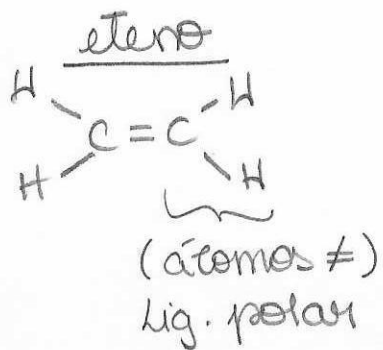 eteno
H H
C = C
H H
(átomos ≠)
Lig. polar